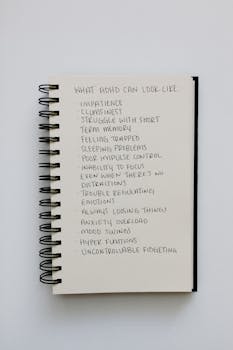 WHAT ADHD CAN LOOK LIKE
· IMPATIENCE
· CLUMSINESS
· STRUGGLE WITH SHORT
TERM MEMORY
· FEELING TRAPPED
· SLEEPING PROBLEMS
· POOR IMPULSE CONTROL
· INABILITY TO FOCUS
EVEN WHEN THERE'S NO
DISTRACTIONS
· TROUBLE REGULATING
EMOTIONS
· ALWAYS LOSING THINGS
· ANXIETY OVERLOAD
· MOOD SWINGS
· HYPER FIXATIONS
· UNCONTROLLABLE FIDGETING